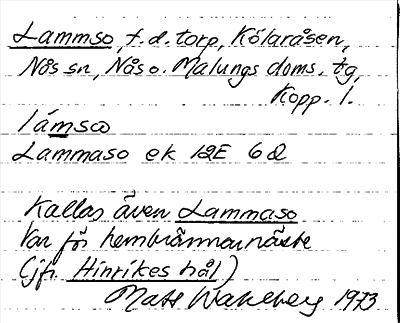 Lammso, f.d. torp, Kölaråsen,
Nås sn, Nås o. Malungs doms. tg,
Kopp. l.
lámsω
Lammaso ek 12E 6d
Kallas även Lammaso
Var för hembrännarnäste
(jfr Hinrikes hål)
Mats Wahlberg 1973